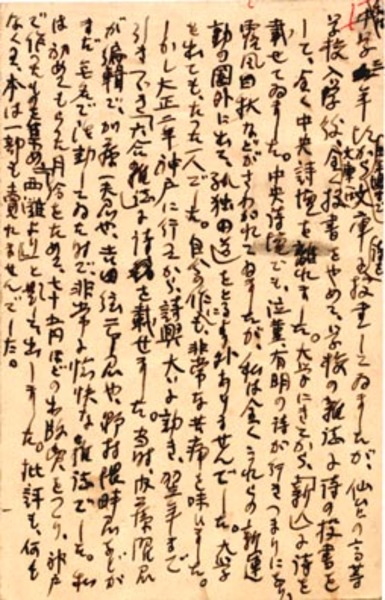 中学三年頃から文庫へ投書してゐましたが、仙台の高等
学校入学後、全く投書をやめて、学校の雑誌に詩の投書を
して、全く中央詩壇を離れました。大学にきてから、「新人」に詩を
載せてゐました。中央詩壇でも、泣菫、有明の詩が行きつまりになり、
露風白秋などがさわがれてゐましたが、私は全くこれらの新運
動の圏外に出て、孤独の道をとるより外ありませんでした。大学
を出ても、たった一人でした。自分ながらも、非常な苦痛を味ひました。
しかし大正二年神戸に行ってから、詩興大いに動き、翌年まで
引きつづき「六合雑誌」に詩を載せました。当時、内ヶ崎君
が編輯で、加藤一夫君や、吉田絃二郎君や、野村隈畔君などが
まだ無名で活動してゐた時で、非常に愉快な雑誌でした。私
は初めてもらった月給をためて、七十五円ほどの出版費をつくり、神戸
で作ったものを集め「西灘より」と題して出しました。批評も、何も
なくて、本は一部も売れませんでした。